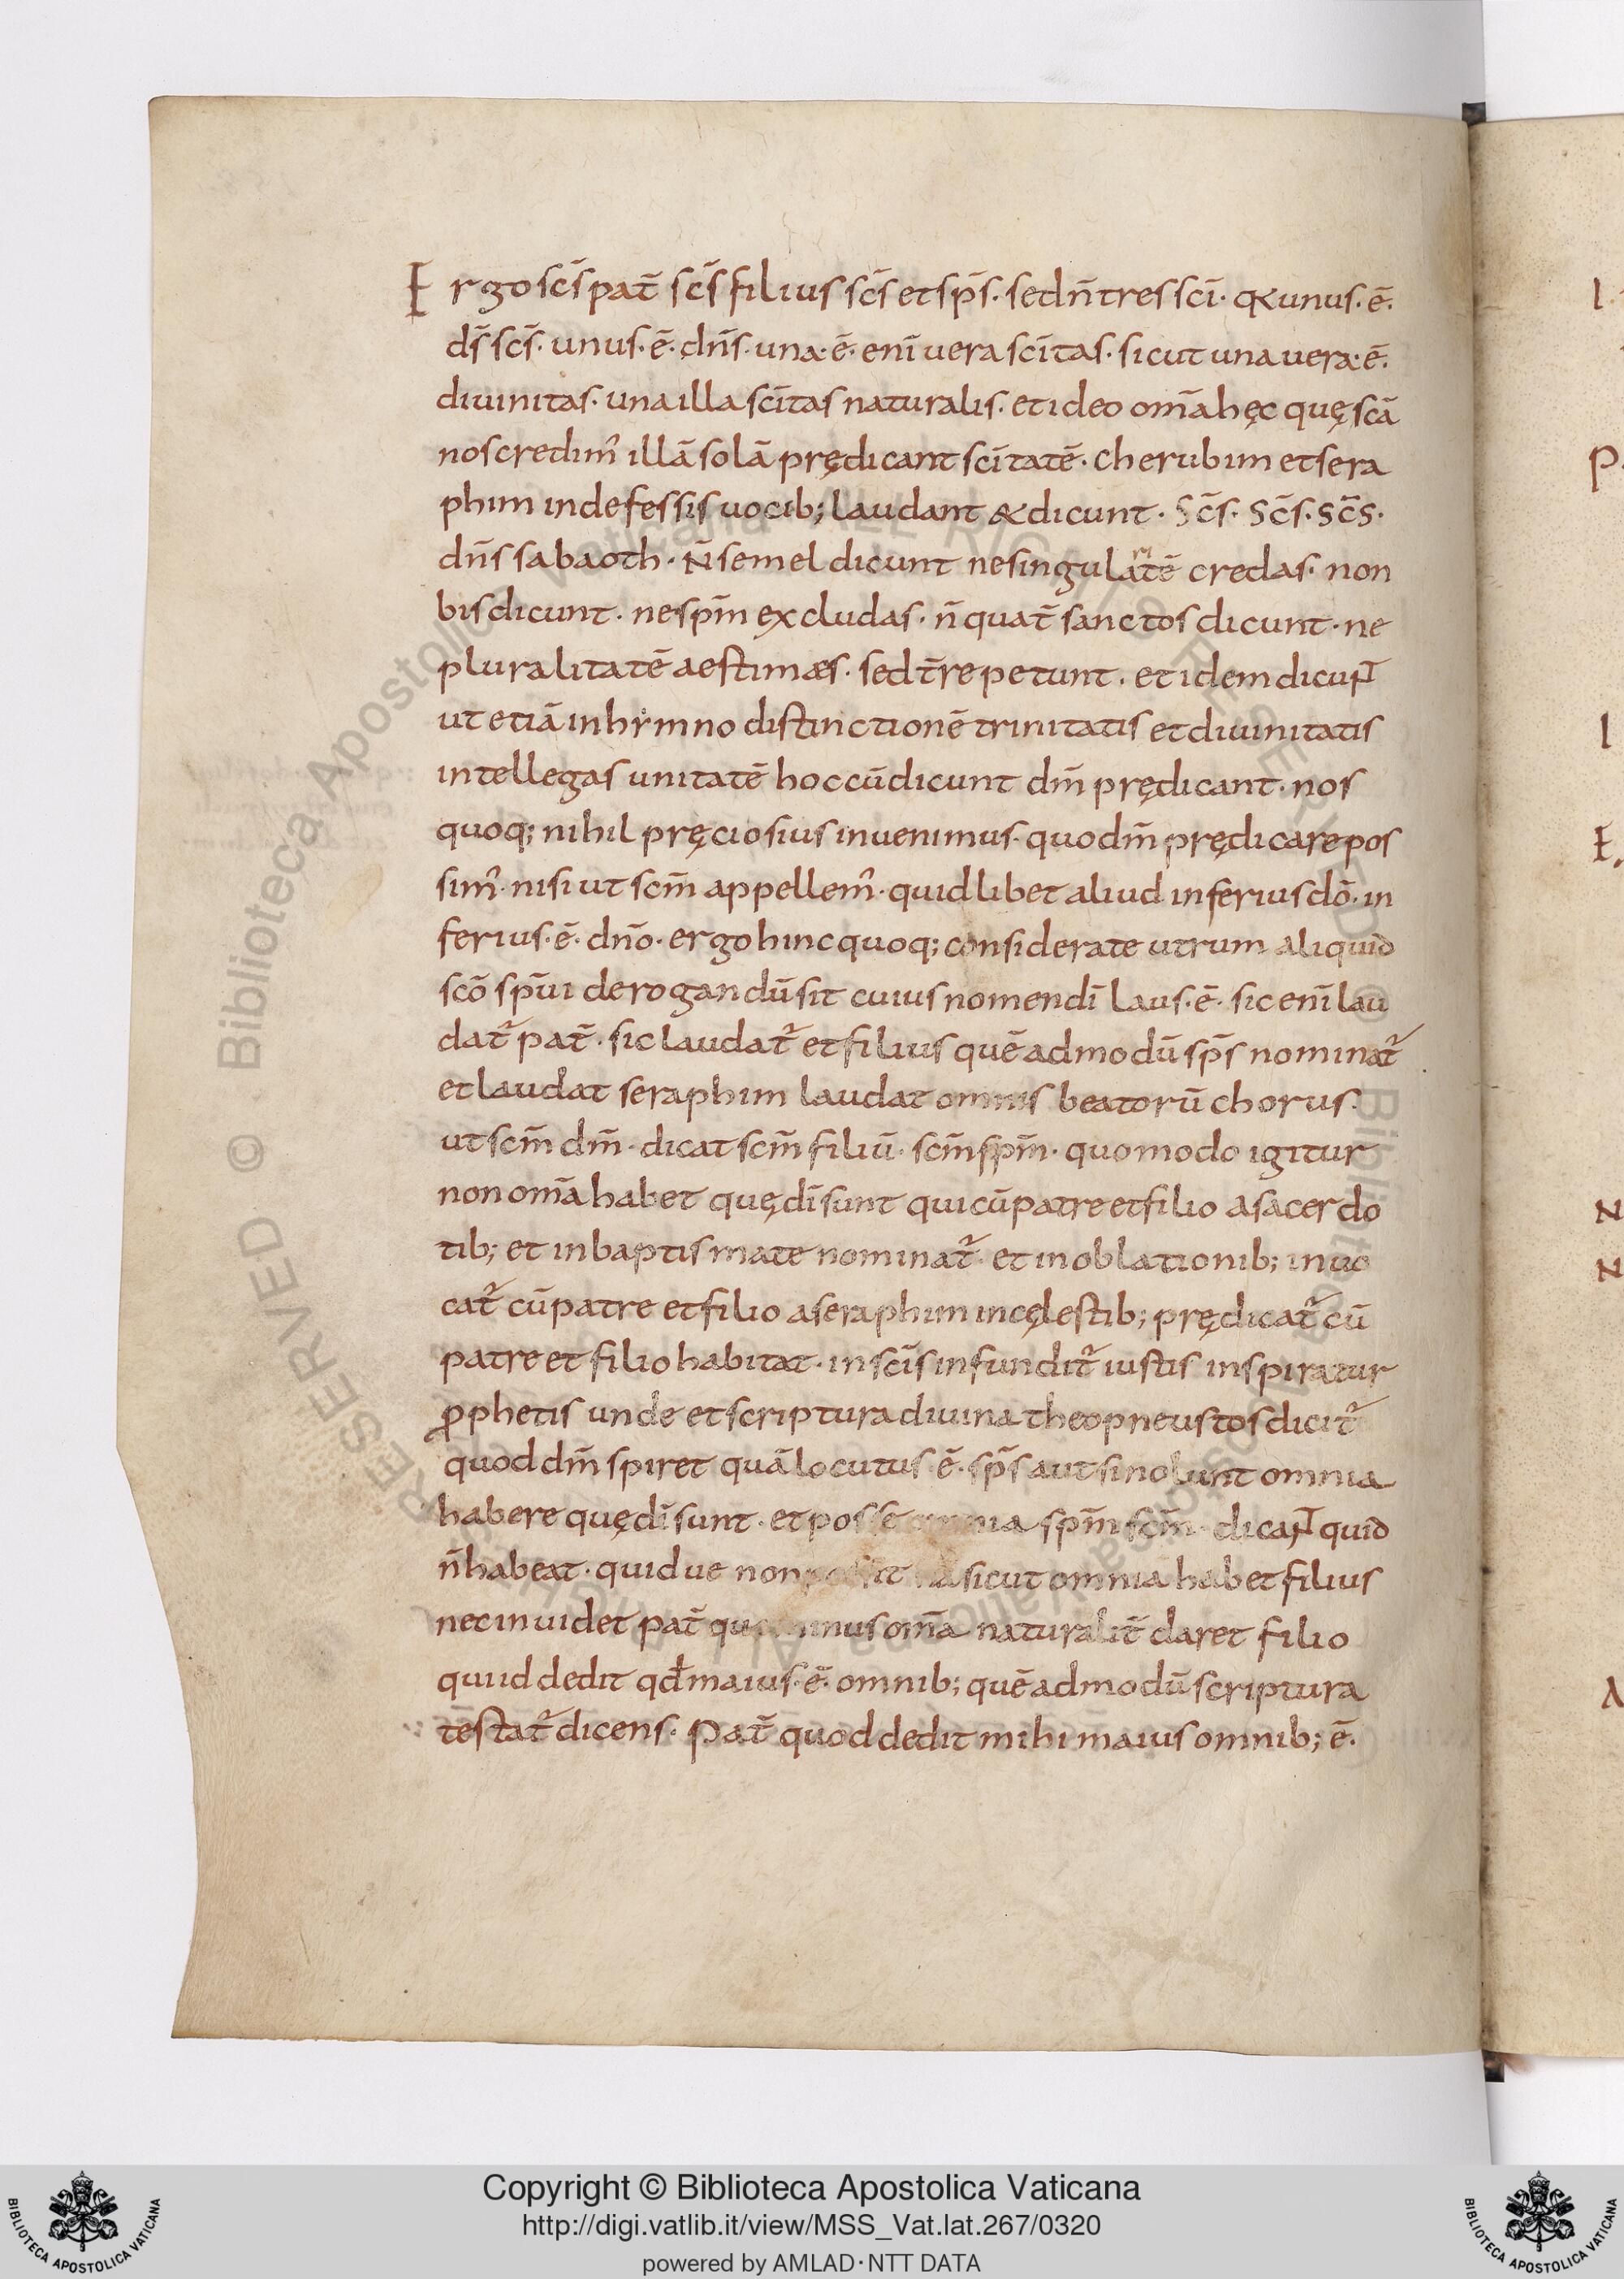 Ergo scs̄ pat̄ scs̄ filius scs̄ et sps̄. sed n̄ tres scī. q& unus. ē.
ds̄ scs̄. unus. ē. dn̄s. una. ē. enī uera scītas. sicut una uera. ē.
diuinitas. una illa scītas naturalis. et ideo om̄a hęc quę scā
nos credim᷒ illā solā prędicant scītatē. cherubim et sera
phim indefessis uocib; laudant & dicunt. Sc̄s. Sc̄s. Sc̄s.
dn̄s sabaoth. N̄ semel dicunt ne singularitatē credas. non
bis dicunt. ne spm̄ excludas. n̄ quat̄ sanctos dicunt. ne
pluralitatē aestimæs. sed t̄ repetunt. et idem dicunt
ut etiā in hẏmno distinctionē trinitatis et diuinitatis
intellegas unitatē hoc cū dicunt dm̄ prędicant. nos
quoq; nihil pręciosius inuenimus. quo dm̄ prędicare pos
sim᷒. nisi ut scm̄ appellem᷒. quidlibet aliud inferius dō. in
ferius. ē. dn̄o. ergo hinc quoq; considerate utrum aliquid
scō sp̄ui derogandū sit cuius nomen dī laus. ē. sic enī lau
dat᷑ pat̄. sic laudat᷑ et filius quē admodū sps̄ nominat᷑
et laudat seraphim laudat omnis beatorū chorus.
ut scm̄ dm̄. dicat scm̄ filiū. scm̄ spm̄. quomodo igitur
non om̄a habet quę dī sunt qui cū patre et filio a sacerdo
tib; et in baptismate nominat᷑. et in oblationib; inuo
cat᷑ cū patre et filio a seraphim in cęlestib; prędicat᷑ cū
patre et filio habitat. in scīs infundit᷑ iustis inspiratur
ꝓphetis unde et scriptura diuina theopneustos dicit᷑
quod dm̄ spiret quā locutus. ē. sps̄ aut si nolunt omnia
habere quę dī sunt. et posse omnia spm̄ scm̄. dicant quid
n̄ habeat. quid ue non possit sicut omnia habet filius
nec inuidet pat̄ quominus om̄a naturalit̄ daret filio
qui id dedit qđ maius. ē. omnib; quē admodū scriptura
testat᷑ dicens. Pat̄ quod dedit mihi maius omnib; ē.
I
P
I
E
N
N
A
© Biblioteca Apostolica Vaticana
Copyright © Biblioteca Apostolica Vaticana
http://digi.vatlib.it/view/MSS_Vat.lat.267/0320
powered by AMLAD·NTT DATA
BIBLIOTECA APOSTOLICA VATICANA
BIBLIOTECA APOSTOLICA VATICANA